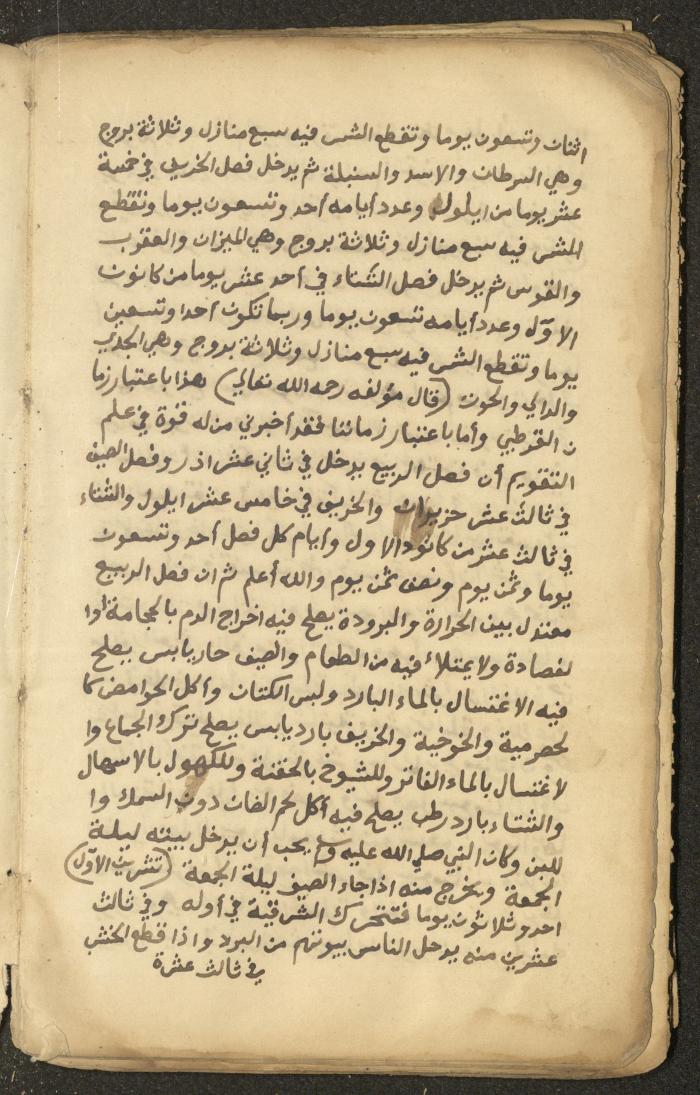 اثنان وتسعون يوما وتقطع الشمس فيه سبع منازل وثلاثة بروج
وهي السرطان والاسد والسنبلة ثم يدخل فصل الخريف في خمسة
عشر يوما من ايلول وعدد أيامه أحد وتسعون يوما وتقطع
الشمس فيه سبع منازل وثلاثة بروج وهي الميزان والعقرب
والقوس ثم يدخل فصل الشتاء في أحد عشر يوما من كانون
الاوّل وعدد أيامه تسعون يوما وربما تكون أحدا وتسعين
يوما وتقطع الشمس فيه سبع منازل وثلاثة بروج وهي الجدي
والدالي والحوت (قال مؤلفه رحمه الله تعالي) هذا باعتبار زما
ن القرطبي وأما باعتبار زماننا فقد أخبرني من له قوة في علم
التقويم أن فصل الربيع يدخل في ثاني عشر اذر وفصل الصيف
في ثالث عشر حزيران والخريف في خامس عشر ايلول والشتاء
في ثالث عشر من كانون الاول وأيام كل فصل أحد وتسعون
يوما وثمن يوم ونصف ثمن يوم والله أعلم ثم ان فصل الربيع
معتدل بين الحرارة والبرودة يصلح فيه اخراج الدم بالحجامة أوا
لفصادة ولا يمتلاء فيه من الطعام والصيف حار يابس يصلح
فيه الاغتسال بالماء البارد ولبس الكتان وأكل الحوامض كا
لحصرمية والخوخية والخريف بارد يابس يصلح ترك الجماع وا
لاغتسال بالماء الفاتر وللشيوخ بالحقنة وللكهول بالاسهال
والشتاء بارد رطب يصلح فيه أكل لحم الضان دون السمك وا
للبن وكان النبي صلي الله عليه وسلم يحب أن يدخل بيته ليلة
الجمعة ويخرج منه اذا جاء الصيف ليلة الجمعة (تشرين الاوّل)
احد وثلاثون يوما فتتحرك الشرقية في أوله وفي ثالث
عشرين منه يدخل الناس بيوتهم من البرد واذا قطع الخشب
في ثالث عشرة